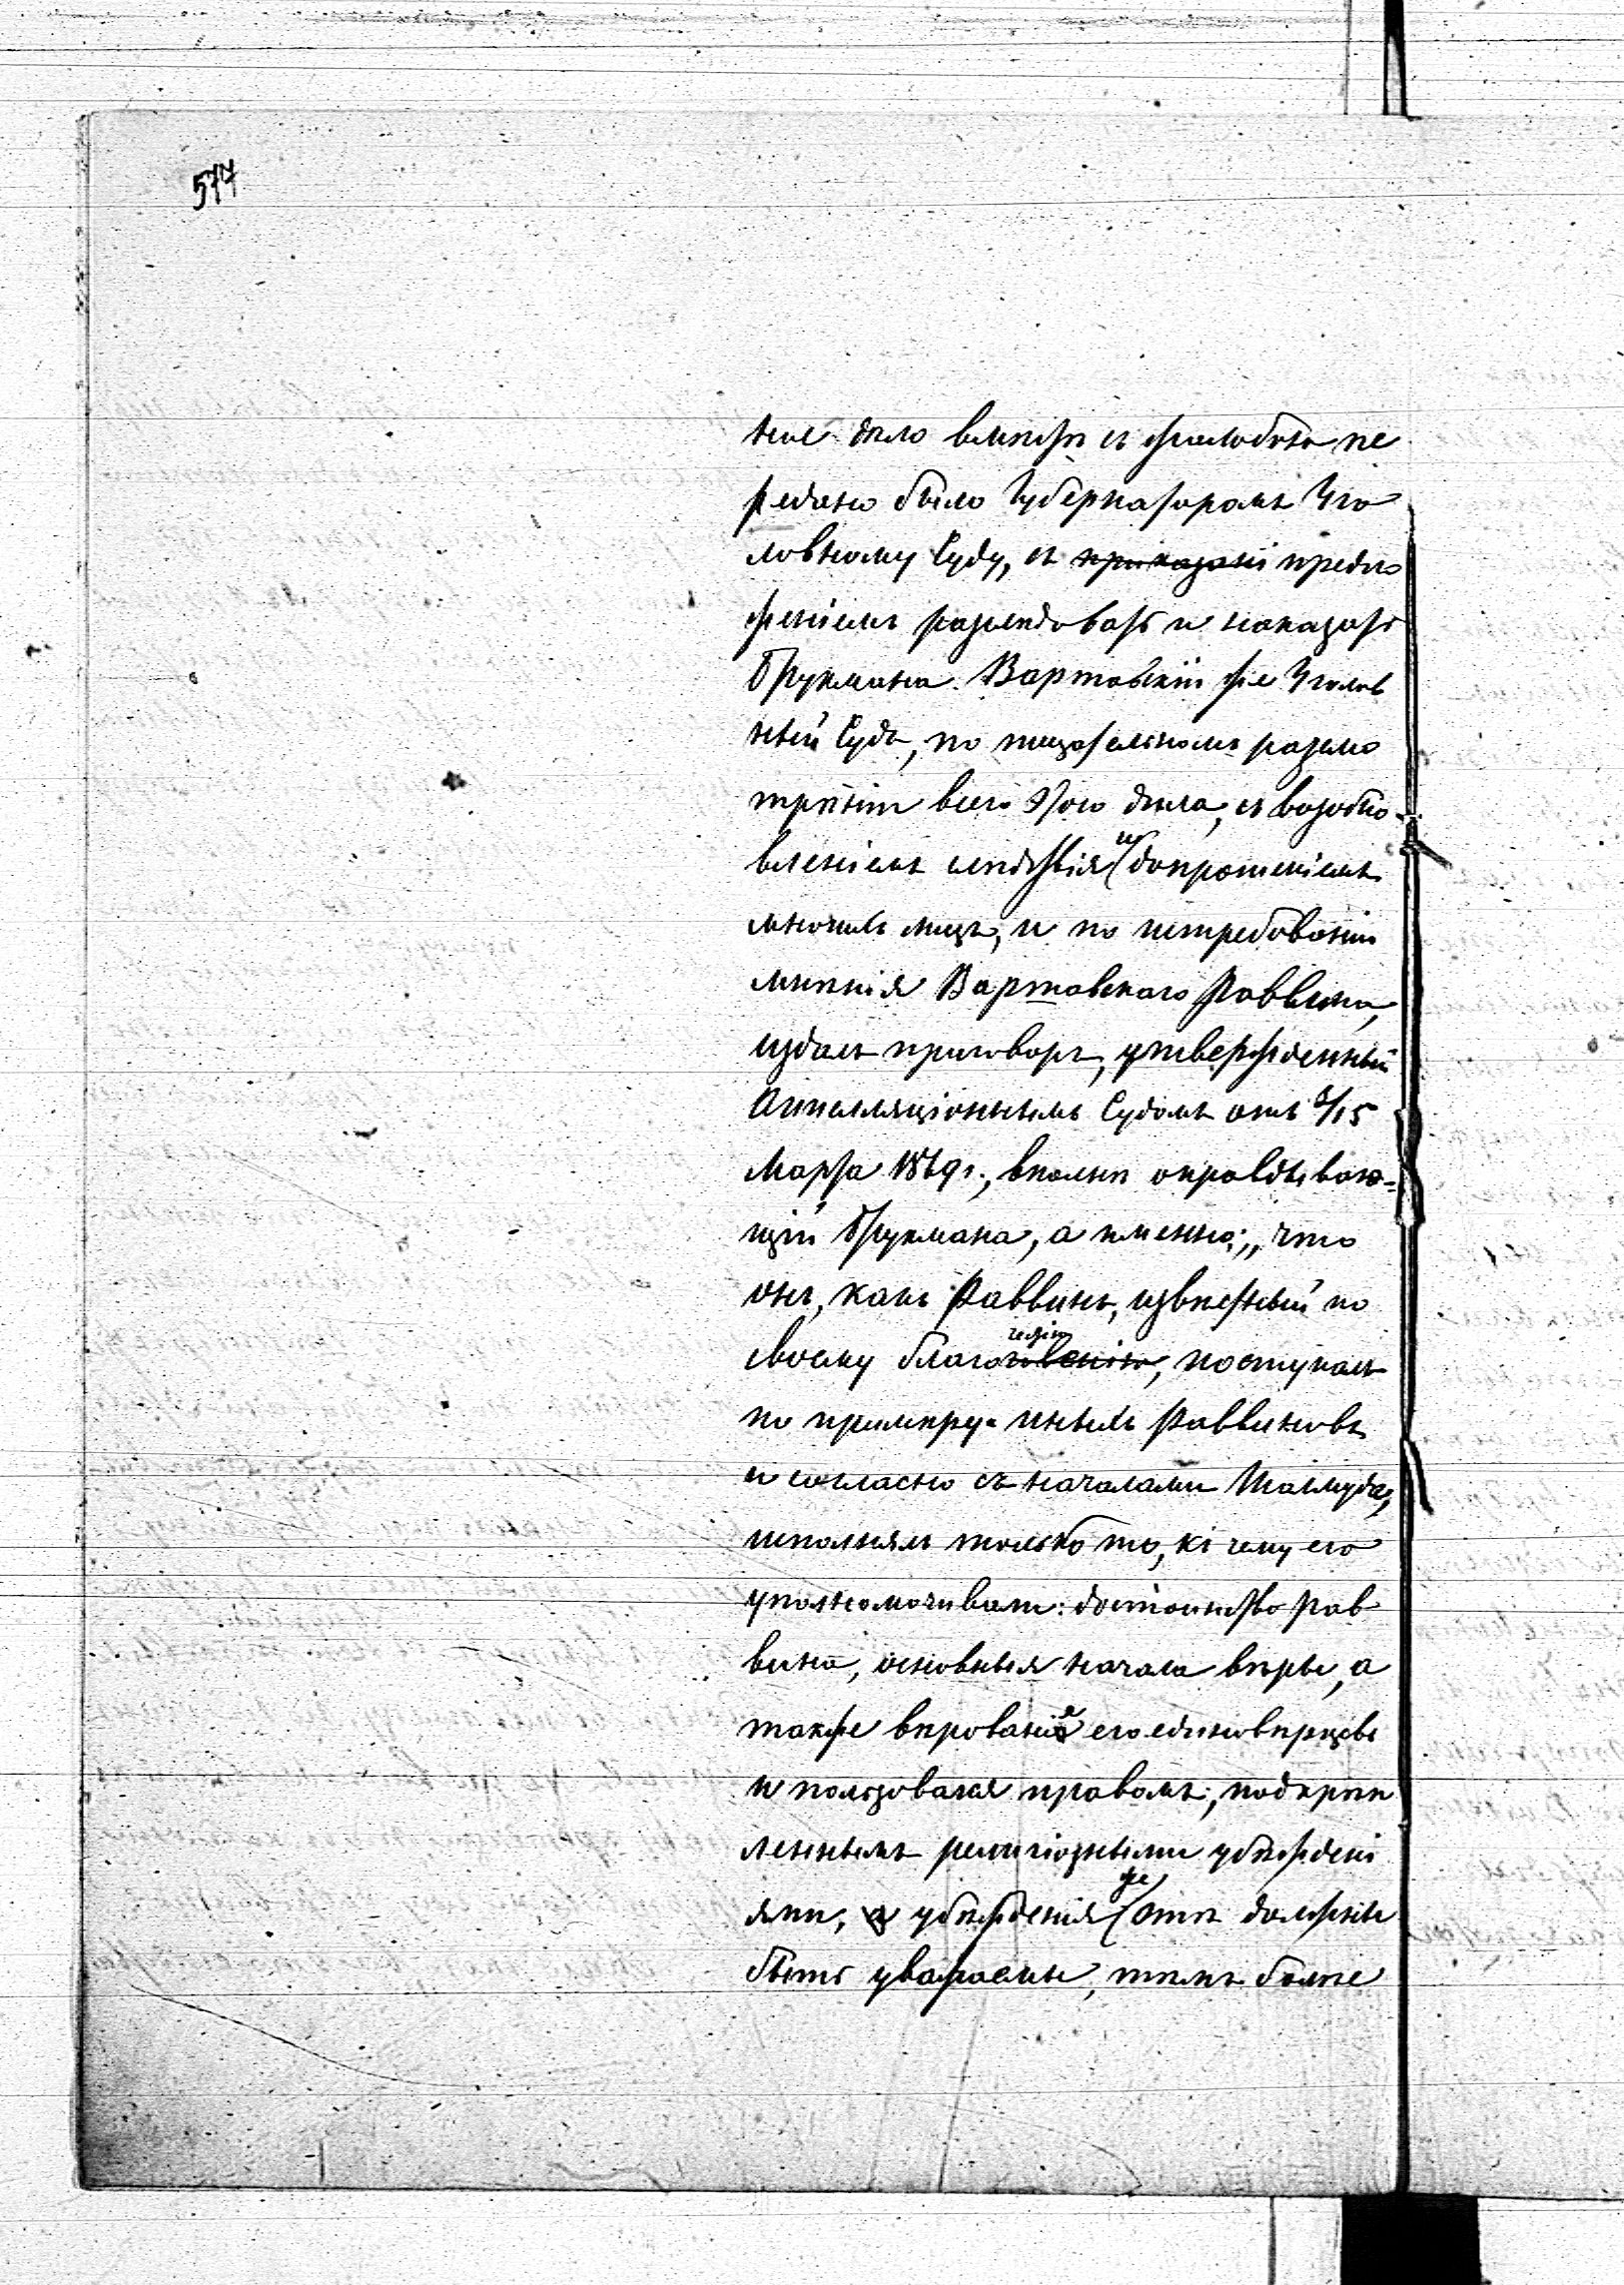 577
ное дѣло вмѣстѣ съ жалобою пе
редано было Губернаторомъ Уго
ловному Суду, съ приказані предло
женіемъ разслѣдовать и наказать
Трукмана. Варшавскій же Уголов
ный Судъ, по тщательномъ разсмо
трѣніи всего этого дѣла, съ возобно-
вленіемъ слѣдствія и допрошеніемъ
многихъ лицъ, и по истребованіи
мнѣнія Варшавскаго Раввина,
издалъ приговоръ, утвержденный
Аппелляціоннымъ Судомъ отъ 3/15
Марта 1869 г., вполнѣ оправдываю-
щій Трукмана, а именно: „что
онъ, какъ Раввинъ, извѣстный по
своему благочестію, поступалъ
по примѣру иныхъ Раввиновъ
и согласно съ началами Талмуда,
исполнялъ только то, къ чему его
уполномочивали: достоинство Рав
вина, основныя начала вѣры, а
также вѣрованіе его единовѣрцевъ
и пользовался правомъ, подкрѣп
леннымъ религіозными убѣжденi
ями, убѣжденія же эти должны
быть уважаемы, тѣмъ болѣе